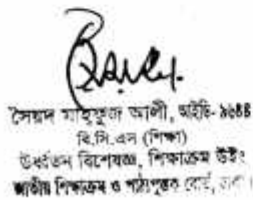 সৈয়দ মাহফুজ আলী, আইডি- ১৬৪৪
বি.সি.এস (শিক্ষা)
ঊর্ধ্বতন বিশেষজ্ঞ, শিক্ষাক্রম উইং
জাতীয় শিক্ষাক্রম ও পাঠ্যপুস্তক বোর্ড, ঢাকা।